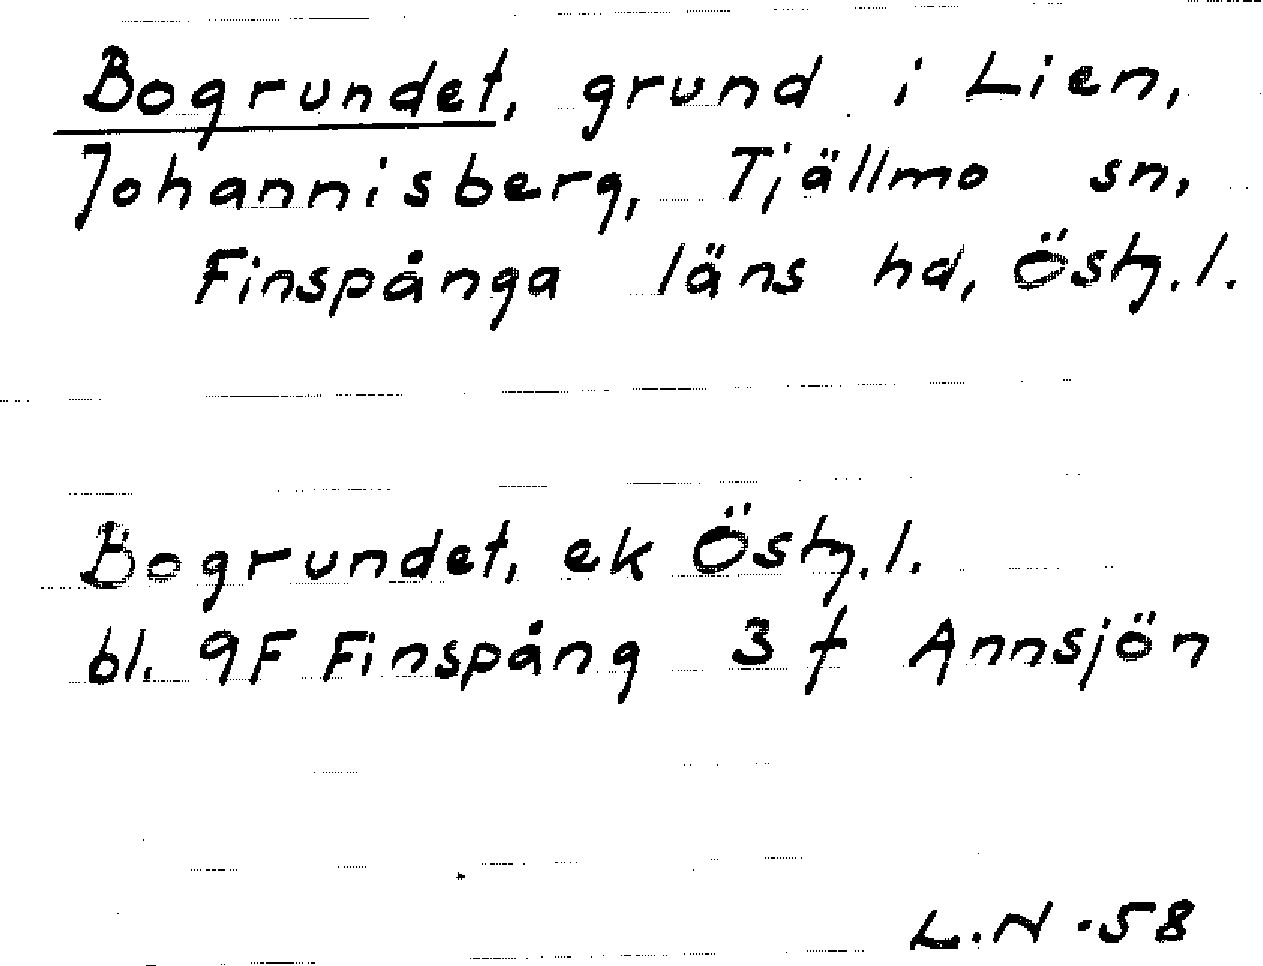 Bogrundet, grund i Lien,
Johannisberg, Tjällmo sn,
Finspånga läns hd, Östg. l.
Bogrundet, ek Östg. l.
bl. 9F Finspång 3 f Annsjön
L.N -58